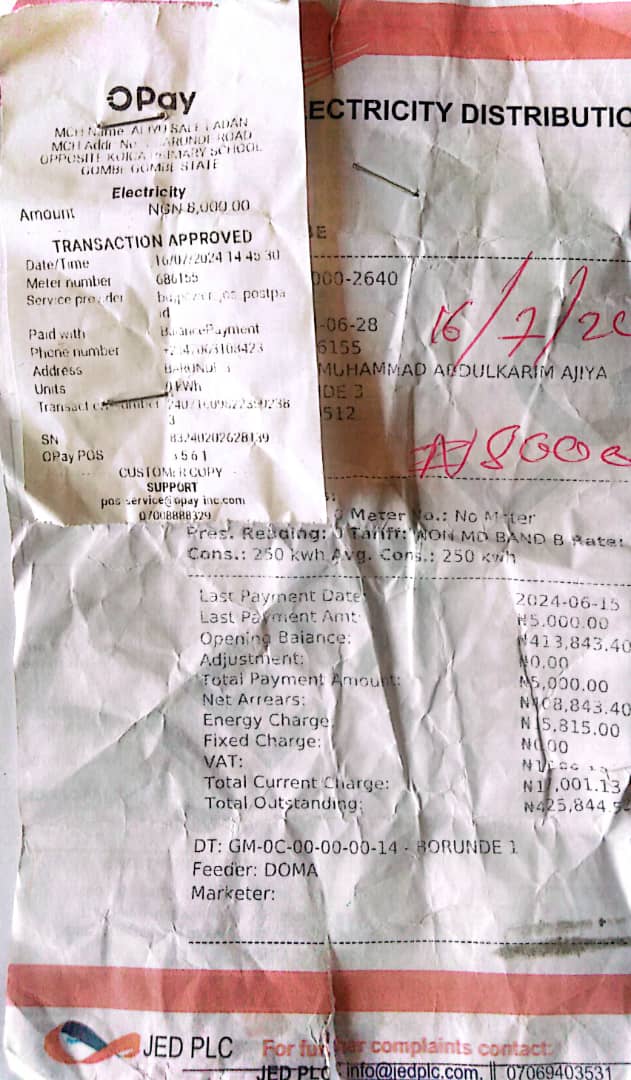 OPay
MCH Name ALIYU SALE LADAN
MCH Addr No ARUNDE ROAD
OPPOSITE KOICA PRIMARY SCHOOL
GOMBE GOMBE STATE
Electricity
Amount NGN 8,000.00
TRANSACTION APPROVED
Date/Time 16/07/2024 14 45 30
Meter number 686155
Service provider postpa
id
Paid with BalancePayment
Phone number
Address
Units 0 kWh
Transact
3
SN
OPay POS
CUSTOMER COPY
SUPPORT
pos service@opay inc.com
07008888329
ECTRICITY DISTRIBUTIO
E
000-2640
-06-28
6155
MUHAMMAD ABDULKARIM AJIYA
DE 3
512
16/7/20
₦8000
Meter No.: No Meter
Pres. Reading: 0 Tariff: NON MD BAND B Rate:
Cons.: 250 kwh Avg. Cons.: 250 kwh
Last Payment Date: 2024-06-15
Last Payment Amt: ₦5,000.00
Opening Balance: ₦413,843.40
Adjustment: ₦0.00
Total Payment Amount: ₦5,000.00
Net Arrears: ₦408,843.40
Energy Charge: ₦15,815.00
Fixed Charge: ₦0.00
VAT:
Total Current Charge: ₦17,001.13
Total Outstanding: ₦425,844.5
DT: GM-0C-00-00-00-14 - BORUNDE 1
Feeder: DOMA
Marketer:
JED PLC
For further complaints contact:
JED PLC info@jedplc.com || 07069403531